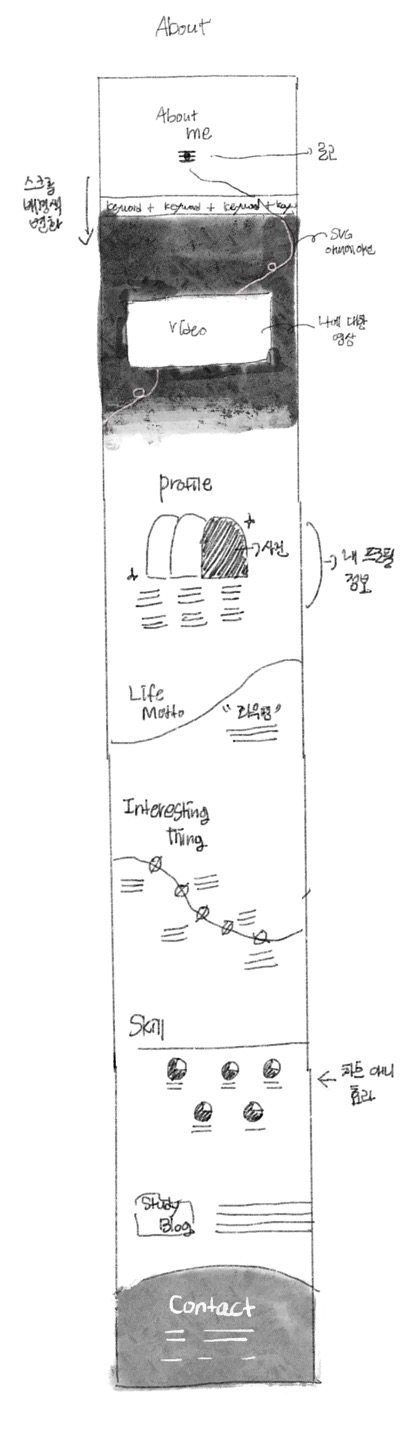 About
About
me
로고
스크롤
배경색
변화
keyword + keyword + keyword + key
SVG
애니메이션
Video
나에 대한
영상
profile
사진
내 프로필
정보
Life
Motto
"좌우명"
Interesting
thing
Skill
차트 애니
효과
Study
Blog
Contact